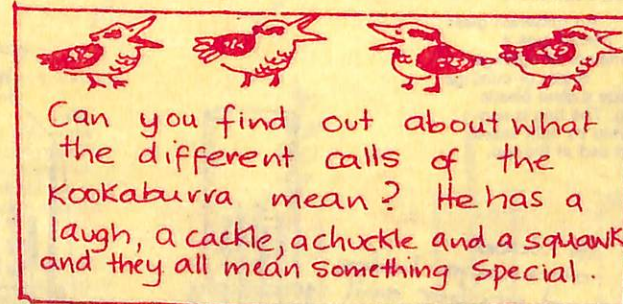 Can you find out about what
the different calls of the
Kookaburra mean? He has a
laugh, a cackle, a chuckle and a squawk
and they all mean something Special.